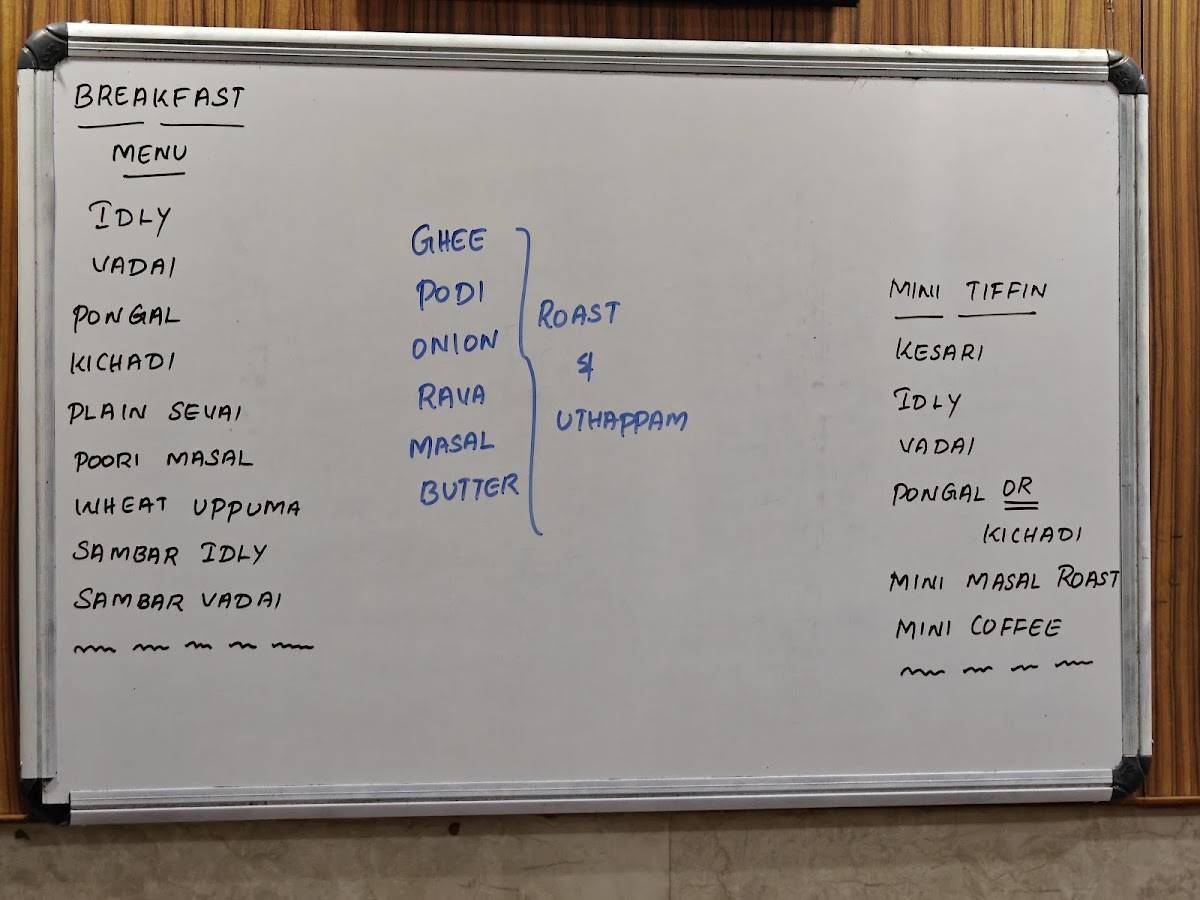 BREAKFAST
MENU
IDLY
VADAI
PONGAL
KICHADI
PLAIN SEVAI
POORI MASAL
WHEAT UPPUMA
SAMBAR IDLY
SAMBAR VADAI
GHEE
PODI
ONION
RAVA
MASAL
BUTTER
ROAST
&
UTHAPPAM
MINI TIFFIN
KESARI
IDLY
VADAI
PONGAL OR
KICHADI
MINI MASAL ROAST
MINI COFFEE